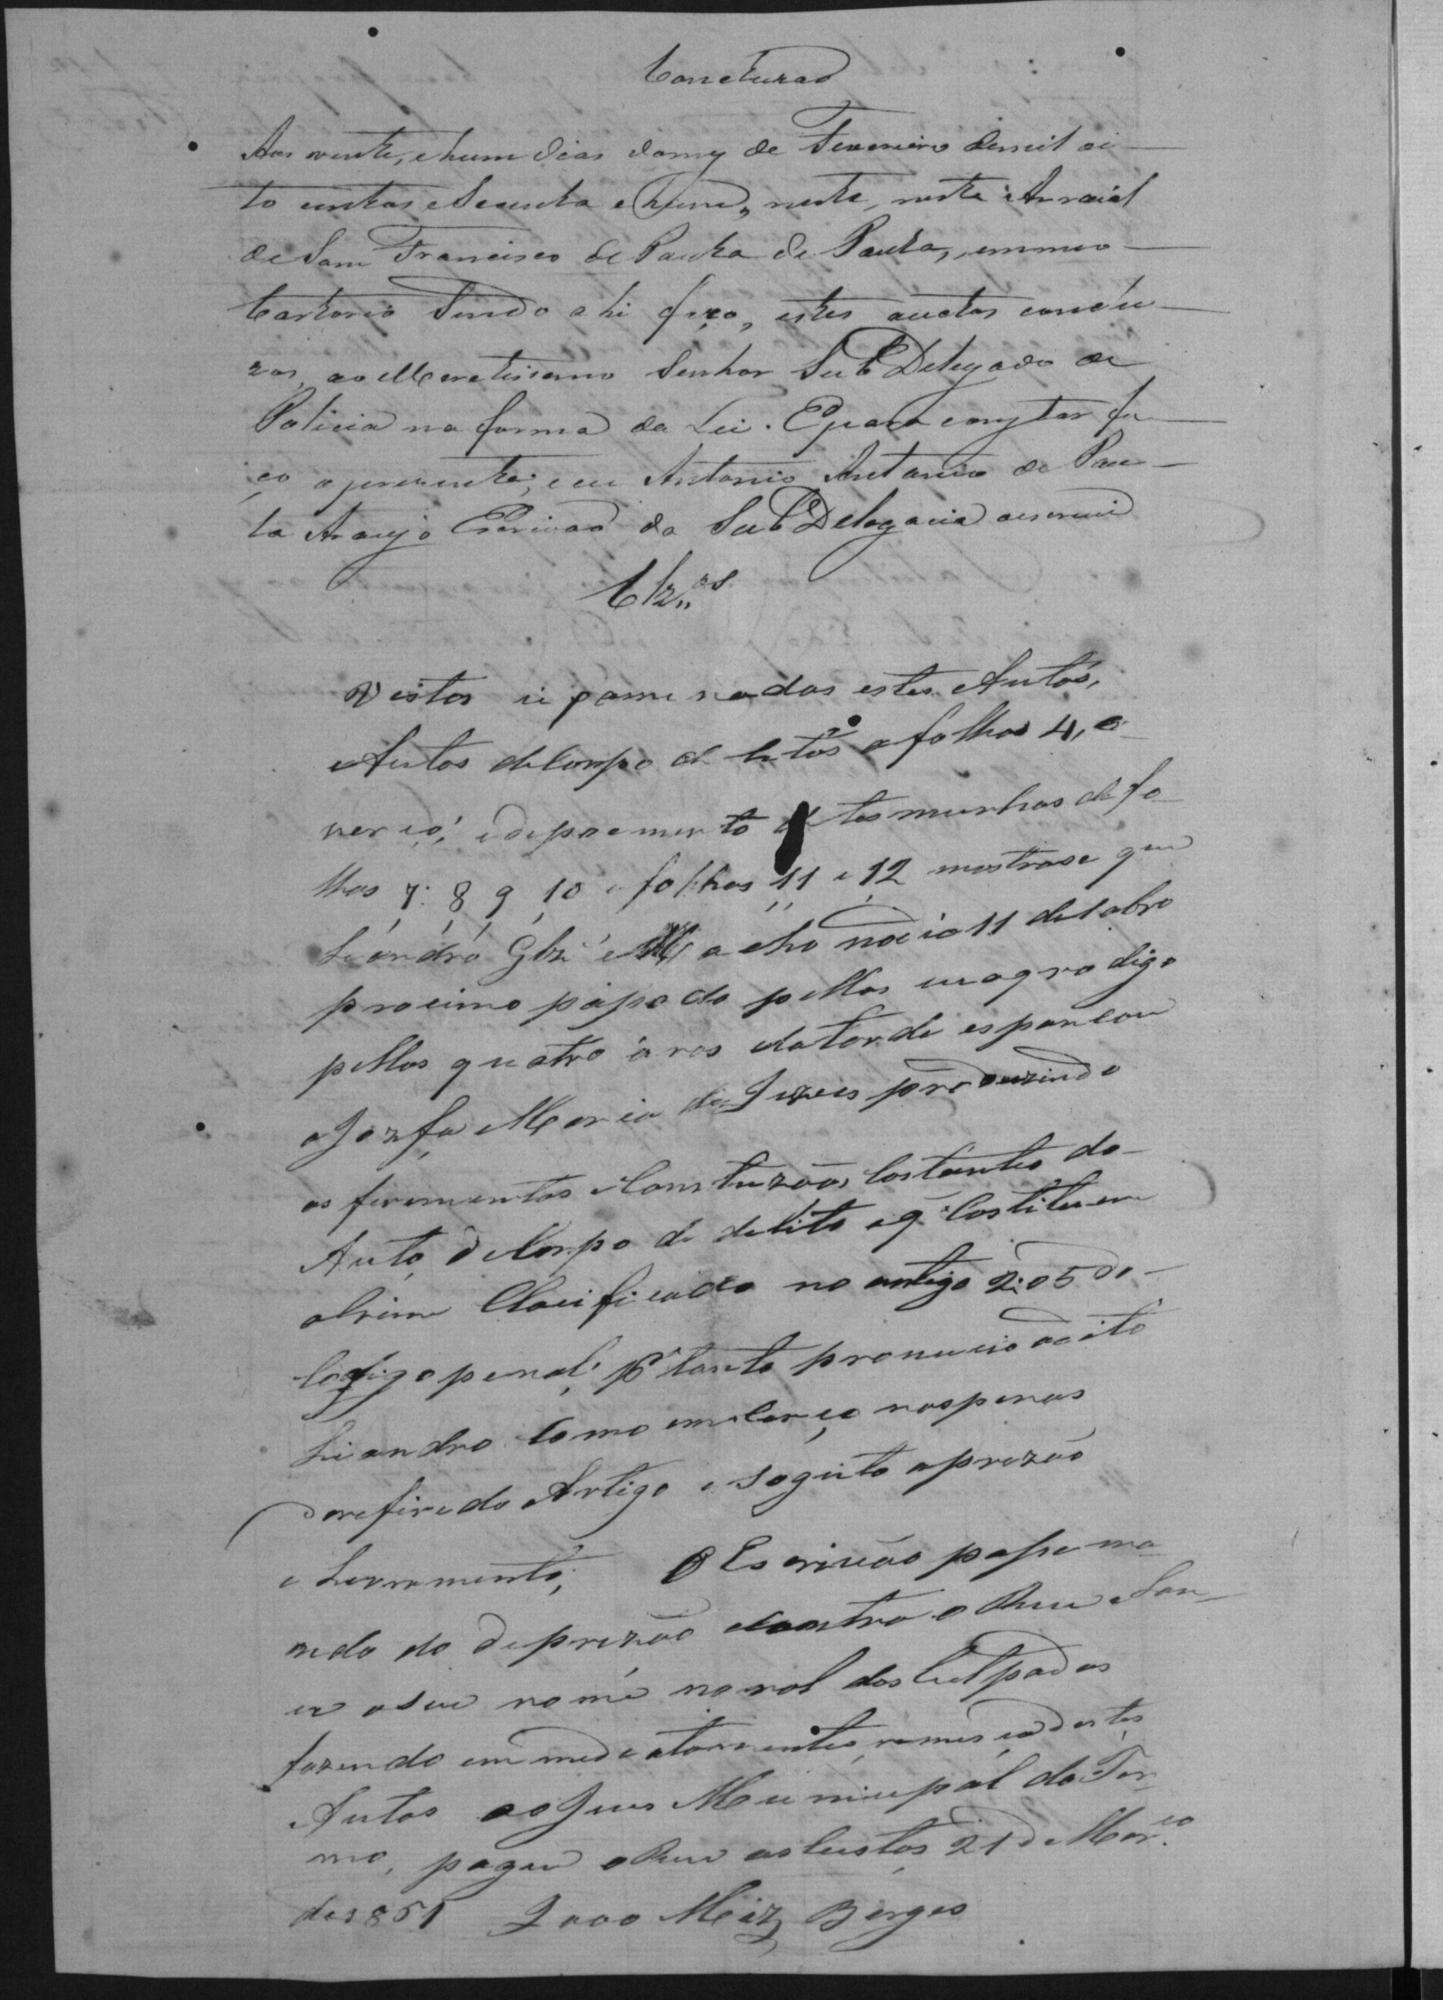 Concluzaõ
Aos vinte, e hum dias domez de Fevereiro demil oi-
to centos eSecenta ehum, neste, neste Arraial
de Sam Francisco de Paula de Paula, emmeo
Cartorio Sendo ahi faço, estes auctos conclu-
zos, ao Meretissemo Senhor SubDelegado de
Policia na forma da Lei. Epara constar fa-
ço oprezente; eeu Antonio Antonio de Pau-
la Araujo Escrivaõ da SubDelegacia oescrevi
Clz.os
Vistos iezaminados estes Autos,
Autos deCorpo de afolhas 4, e
edepoemento de tesmunhas defo-
lhas 7: 8, 9, 10 e folhas 11 e 12 mostrase que
Leandro nodia 11 de
procimo paçado pellas digo
pellas quatro óras datarde espancou
aJozefa Maria de Jezus produzindo
os ferementos eContuzoáos Costantes do
Auto deCorpo de delito eq Costituem
ocrime Clacificado no artigo 205 do
Codigo penal; P.tanto pronuncio adito
Liandro Como nas penas
dorefirido Artigo e sogeito aprizáo
e Livramento, O Escriváo paçe ma-
ndado deprizáo contra o Reu eLan-
ce oseu nome norol dosCulpados
fazendo emmediatamentes remeçadestes
Autos aoJuis Municipal do Ter-
mo, pague oReu asCustas 21 de Mar.ço
de1861 Joao Miz Borges